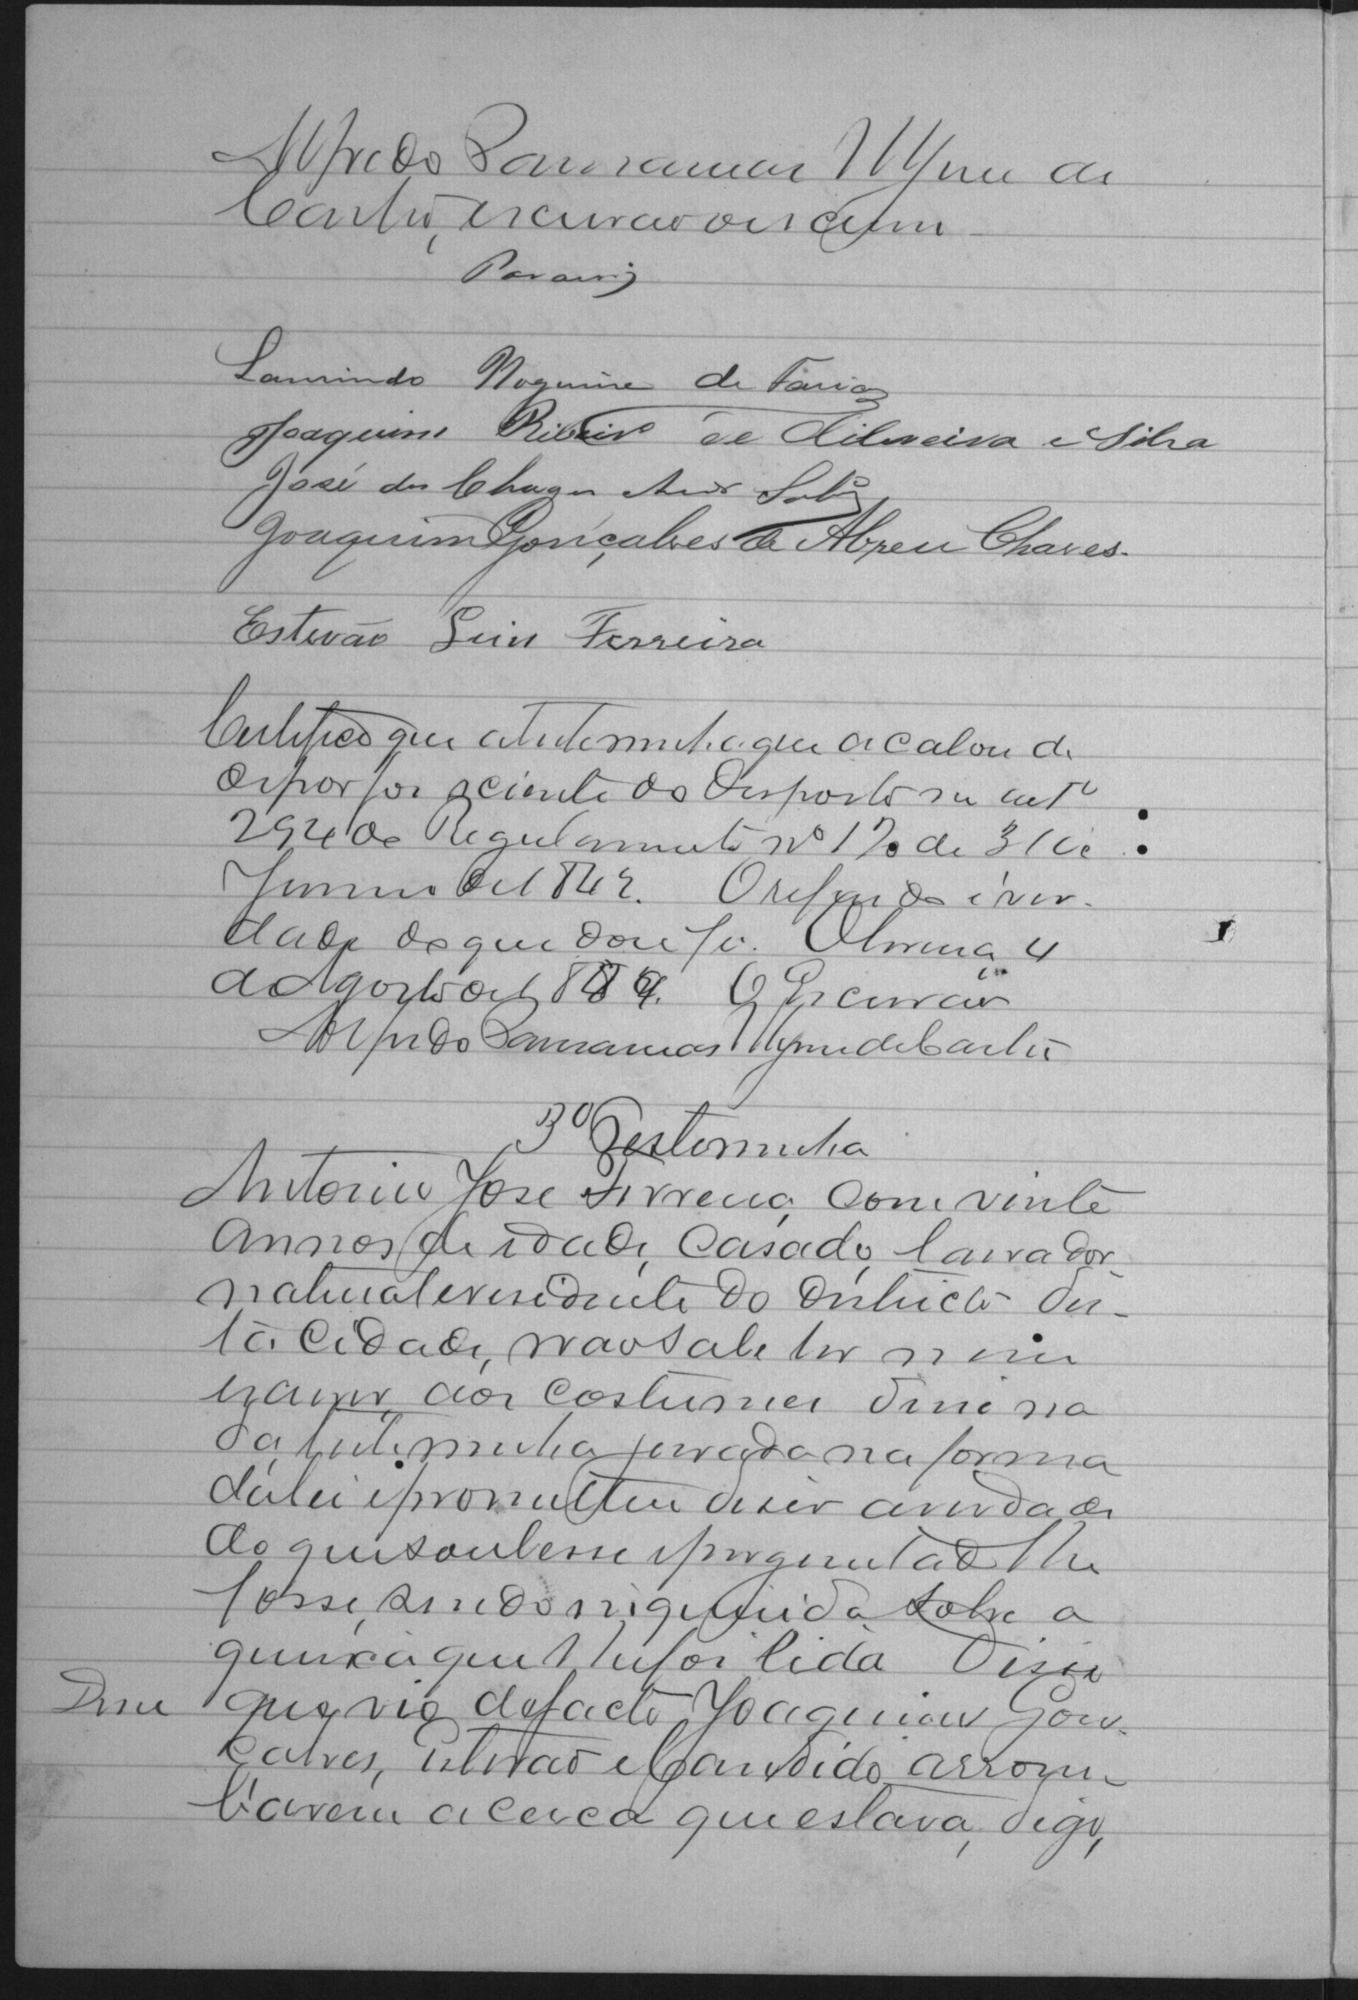 Alfredo de
Castro, escrivão o escrevi
Laurindo Nogueira de Faria
Joaquim Ribeiro de Oliveira e Silva
José das Chagas Sobr.º
Joaquim Gonçalves de Abreu Chaves.
Estevão Luis Ferreira
Certifico que a testemunha que acabou de
depor foi sciente do disposto no art.º
294 do Regulamento nº 120 de 31 de
de 1842. O referido é ver-
dade do que dou fé. Oliveira, 4
de Agosto de 1884. O Escrivão
Alfredo de Castro
3ª Testemunha
Antonio Jose Ferreira, com vinte
annos de idade, casado, lavrador,
natural e residente do districto des-
ta cidade, não sabe ler nem
escrever, aos costumes disse na-
da, testemunha jurada na forma
da lei e prometteu diser a verdade
do que soubesse e perguntado lhe
fosse, sendo inquirida sobre a
queixa que lhe foi lida Disse
Disse que vio de facto Joaquim Gon-
çalves, Estevão e Candido arrom-
barem a cerca que estava, digo,